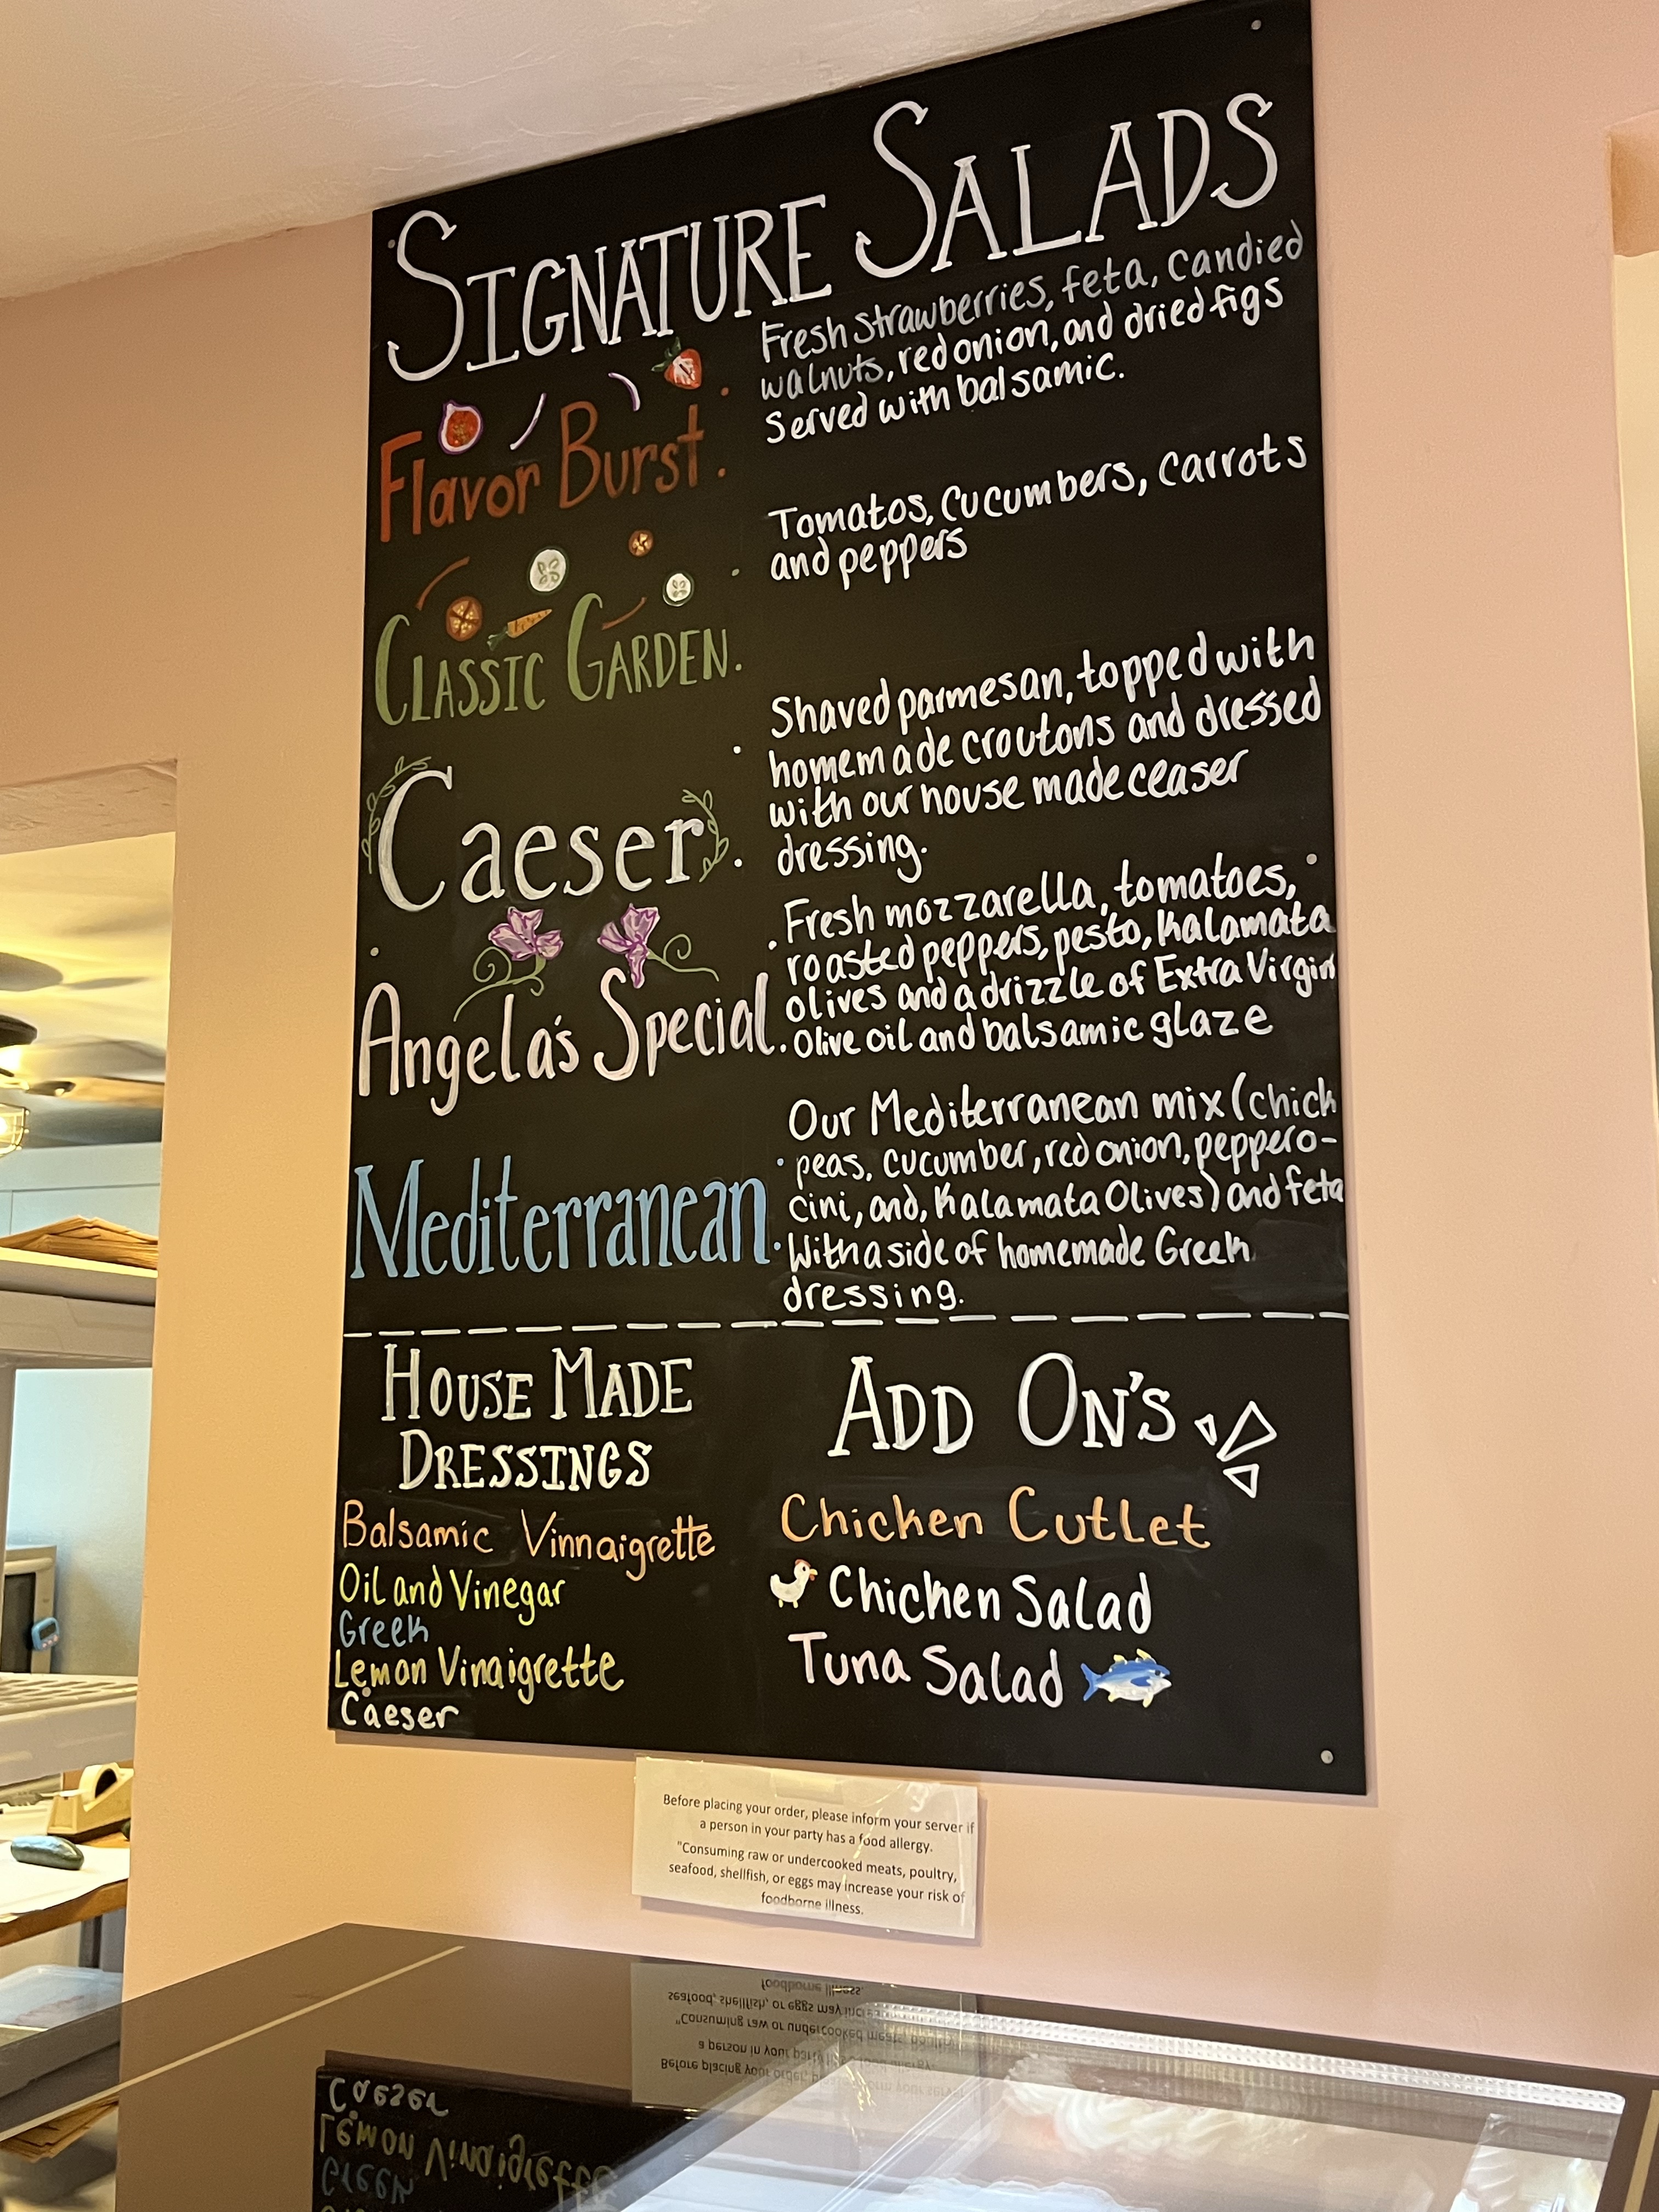 SIGNATURE SALADS
Flavor Burst.
Fresh strawberries, feta, candied
walnuts, red onion, and dried figs
Served with balsamic.
CLASSIC GARDEN.
Tomatos, cucumbers, carrots
and peppers
Caeser.
Shaved parmesan, topped with
homemade croutons and dressed
with our house made ceaser
dressing.
Angela's Special.
Fresh mozzarella, tomatoes,
roasted peppers, pesto, Kalamata
olives and a drizzle of Extra Virgin
Olive oil and balsamic glaze
Mediterranean.
Our Mediterranean mix (chick
peas, cucumber, red onion, peppero-
cini, and, Kalamata Olives) and feta
With a side of homemade Greek
dressing.
HOUSE MADE
DRESSINGS
Balsamic Vinnaigrette
Oil and Vinegar
Greek
Lemon Vinaigrette
Caeser
ADD ON'S
Chicken Cutlet
Chicken Salad
Tuna Salad
Before placing your order, please inform your server if
a person in your party has a food allergy.
"Consuming raw or undercooked meats, poultry,
seafood, shellfish, or eggs may increase your risk of
foodborne illness.